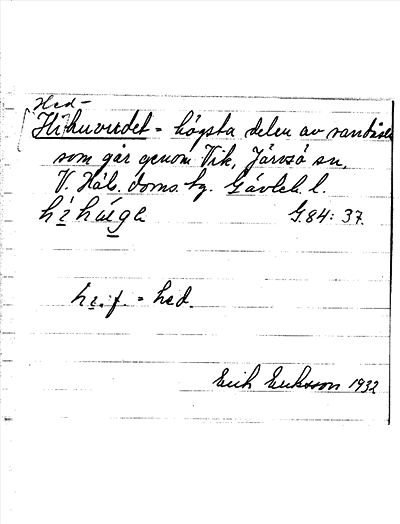 Hed-
Hi huvudet = högsta delen av sandåsen
som går genom Vik, Järvsö sn,
V. Häls. doms. hg. Gävleb. l.
G.84: 37.
f. = hed.
Erik Eriksson 1932